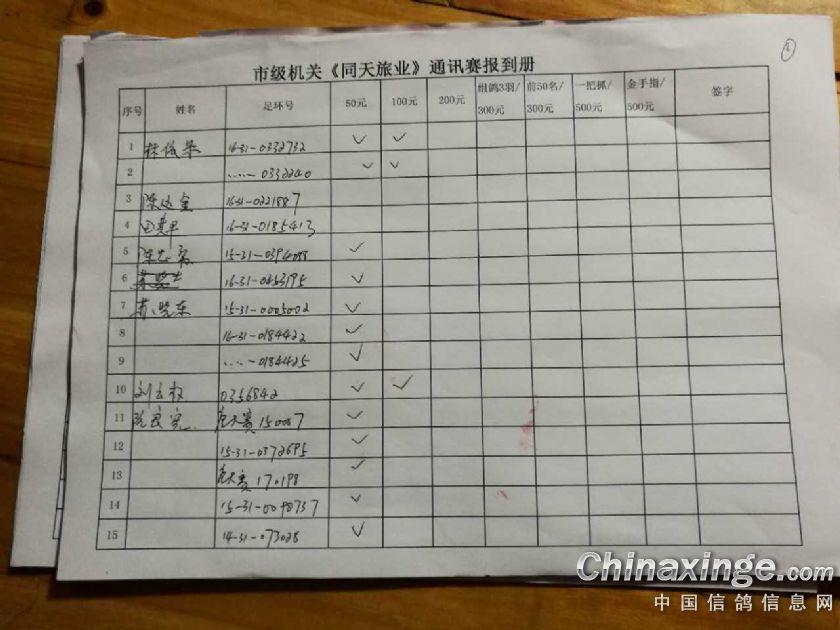 市级机关《同天旅业》通讯赛报到册
序号 姓名 足环号 50元 100元 200元 组鸽3羽/300元 前50名/300元 一把抓/500元 金手指/500元 签字
1 16-31-0332732 ✓ ✓
2 ……-0332240 ✓ ✓
3 16-31-0221887
4 16-31-0185413
5 15-31-0394088 ✓
6 16-31-0253195 ✓
7 苏晓东 15-31-0005002 ✓
8 16-31-0184422 ✓
9 ……-0184425 ✓
10 0356842 ✓ ✓
11 150087 ✓
12 15-31-0372695 ✓
13 170198 ✓
14 15-31-0098737 ✓
15 14-31-073028 ✓
Chinaxinge.com
中国信鸽信息网